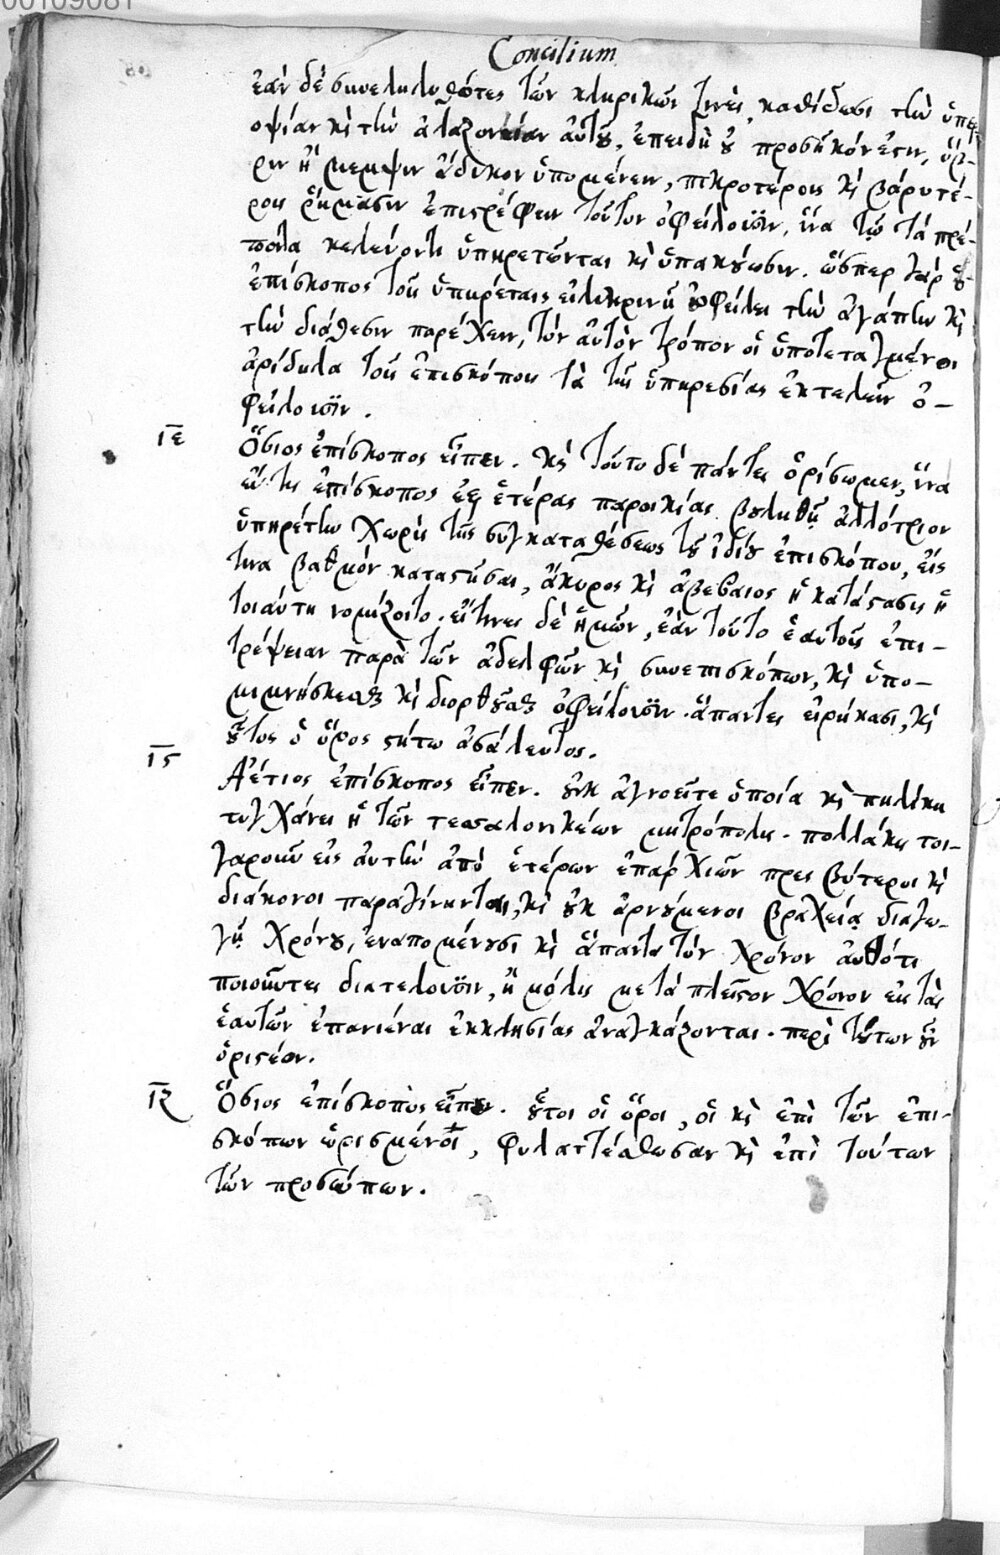 00109081
Concilium
ἐὰν δὲ συνεληλυθότες τῶν κληρικῶν τινὲς, καθίδωσι τὴν ὑπερ
οψίαν κὶ τὴν ἀλαζονείαν αὐτοῦ, ἐπειδὴ οὐ προσῆκόν ἐστιν, ὕβ-
ριν ἢ μέμψιν ἄδικον ὑπομένειν, πικροτέροις κὶ βαρυτέ-
ροις ῥήμασιν ἐπιστρέφειν τοῦτον ὀφείλουσιν, ἵνα τῷ τὰ πρέ-
ποντα κελεύοντι ὑπηρετῶνται κὶ ὑπακούωσιν. ὥσπερ γὰρ ὁ
ἐπίσκοπος τοῖς ὑπηρέταις εἰλικρινῆ ὀφείλει τὴν ἀγάπην κὶ
τὴν διάθεσιν παρέχειν, τὸν αὐτὸν τρόπον οἱ ὑποτεταγμένοι
ἀρίδηλα τοῖς ἐπισκόποις τὰ τῆς ὑπηρεσίας ἐκτελεῖν ὀ-
φείλουσιν.
ιε Ὅσιος ἐπίσκοπος εἶπεν. κὶ τοῦτο δὲ πάντες ὁρίσωμεν, ἵνα
εἴ τις ἐπίσκοπος ἐξ ἑτέρας παροικίας βουληθῇ ἀλλότριον
ὑπηρέτην χωρὶς τῆς συγκαταθέσεως τοῦ ἰδίου ἐπισκόπου, εἴς
τινα βαθμὸν καταστῆσαι, ἄκυρος κὶ ἀβέβαιος ἡ κατάστασις ἡ
τοιαύτη νομίζοιτο. εἴτινες δὲ ἡμῶν, ἐὰν τοῦτο ἑαυτοῖς ἐπι-
τρέψειαν παρὰ τῶν ἀδελφῶν κὶ συνεπισκόπων, κὶ ὑπο-
μιμνήσκεσθαι κὶ διορθοῦσθαι ὀφείλουσιν. ἅπαντες εἰρήκασι, κὶ
οὗτος ὁ ὅρος στήτω ἀσάλευτος.
ις Ἀέτιος ἐπίσκοπος εἶπεν. οὐκ ἀγνοεῖτε ὁποία κὶ πηλίκη
τυγχάνει ἡ τῶν τεσσαλονικέων μητρόπολις. πολλάκις τοι-
γαροῦν εἰς αὐτὴν ἀπὸ ἑτέρων ἐπαρχιῶν πρεσβύτεροι κὶ
διάκονοι παραγίνονται, κὶ οὐκ ἀρκούμενοι βραχείᾳ διαγω-
γῇ χρόνου, ἐναπομένουσι κὶ ἅπαντα τὸν χρόνον αὐθότι
ποιοῦντες διατελοῦσιν, ἢ μόλις μετὰ πλεῖστον χρόνον εἰς τὰς
ἑαυτῶν ἐπανιέναι ἐκκλησίας ἀναγκάζονται. περὶ τούτων οὖν
ὁριστέον.
ιζ Ὅσιος ἐπίσκοπος εἶπεν. οὗτοι οἱ ὅροι, οἱ κὶ ἐπὶ τῶν ἐπι-
σκόπων ὡρισμένοι, φυλαττέσθωσαν κὶ ἐπὶ τούτων
τῶν προσώπων.